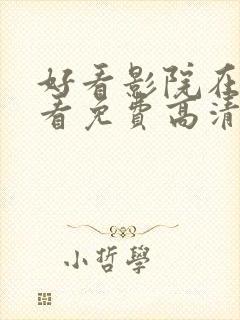 好看影院在
看免費高清
小哲學